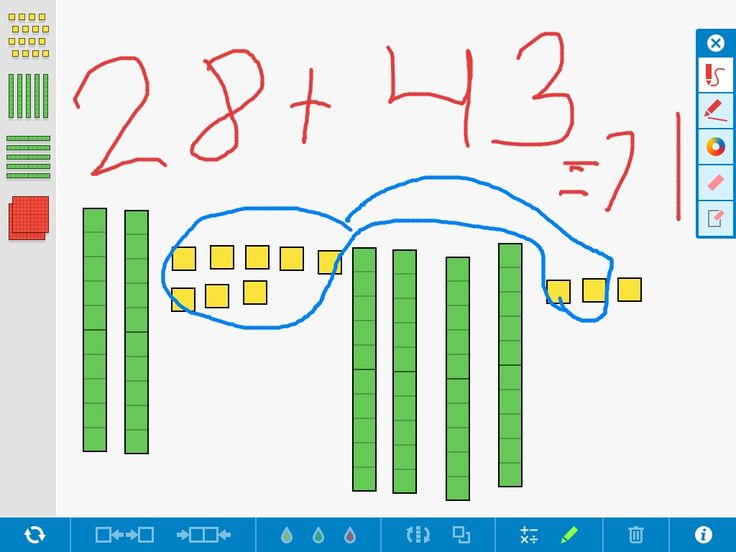 28 + 43
= 71